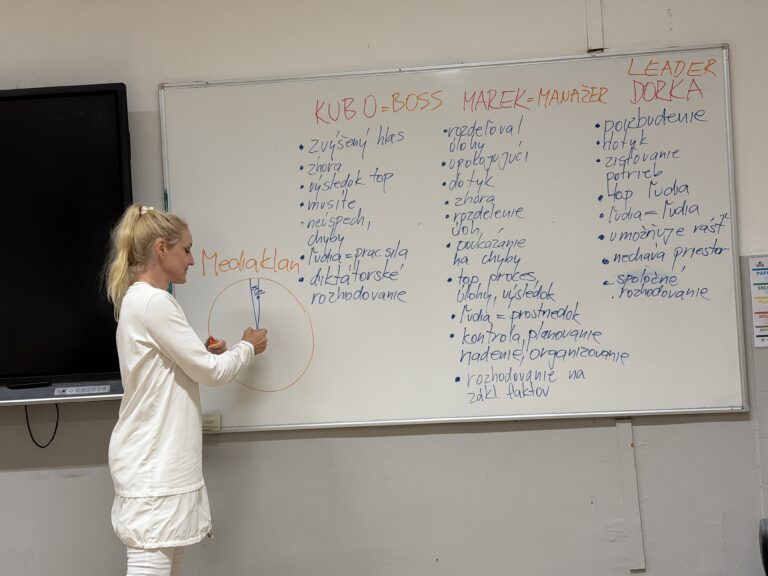 KUBO=BOSS
• zvýšený hlas
• zhora
• výsledok top
• musíte
• neúspech,
chyby
• ľudia=prac.sila
• diktátorské
rozhodovanie
MAREK=MANAŽER
• rozdeľoval
úlohy
• upokojujúci
• dotyk
• zhora
• rozdelenie
úloh,
• poukázanie
na chyby
• top proces,
úlohy, výsledok
• ľudia = prostriedok
• kontrola, planovanie
riadenie, organizovanie
• rozhodovanie na
zákl. faktov
LEADER
DORKA
• povzbudenie
• dotyk
• zisťovanie
potrieb
• top ľudia
• ľudia=ľudia
• umožňuje rásť
• nechava priestor
• spoločné
rozhodovanie
Mediaklan